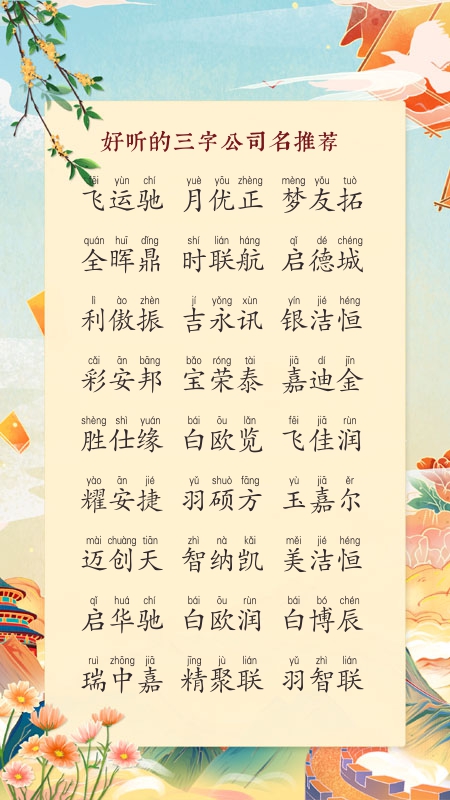 好听的三字公司名推荐
fēi yùn chí yuè yōu zhèng mèng yǒu tuò
飞运驰 月优正 梦友拓
quán huī dǐng shí lián háng qǐ dé chéng
全晖鼎 时联航 启德城
lì ào zhèn jí yǒng xùn yín jié héng
利傲振 吉永讯 银洁恒
cǎi ān bāng bǎo róng tài jiā dí jīn
彩安邦 宝荣泰 嘉迪金
shèng shì yuán bái ōu lǎn fēi jiā rùn
胜仕缘 白欧览 飞佳润
yào ān jié yǔ shuò fāng yù jiā ěr
耀安捷 羽硕方 玉嘉尔
mài chuàng tiān zhì nà kǎi měi jié héng
迈创天 智纳凯 美洁恒
qǐ huá chí bái ōu rùn bái bó chén
启华驰 白欧润 白博辰
ruì zhōng jiā jīng jù lián yǔ zhì lián
瑞中嘉 精聚联 羽智联